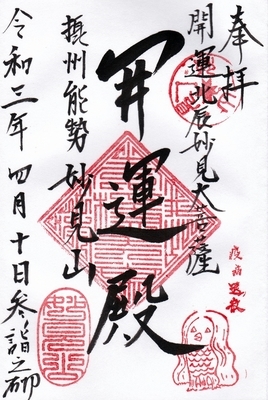 奉拝
開運北辰妙見大菩薩
開運殿
摂州能勢 妙見山
令和三年 四月 十日 参詣之砌
疫病退散